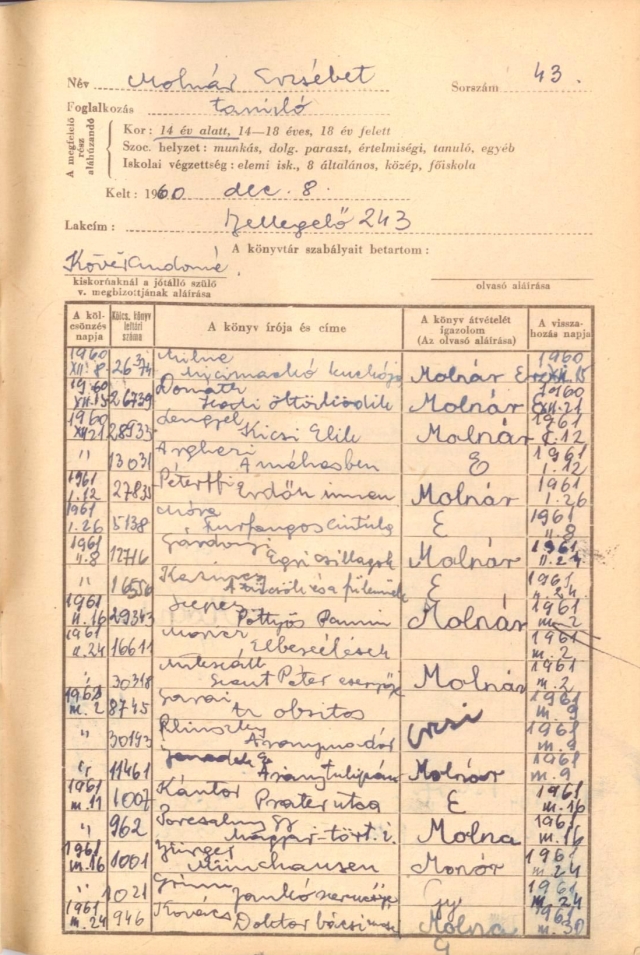 Név Molnár Erzsébet Sorszám 43.
Foglalkozás tanuló
A megfelelő rész aláhúzandó
Kor: 14 év alatt, 14—18 éves, 18 év felett
Szoc. helyzet: munkás, dolg. paraszt, értelmiségi, tanuló, egyéb
Iskolai végzettség: elemi isk., 8 általános, közép, főiskola
Kelt: 1960 dec. 8.
Lakcím: 243
A könyvtár szabályait betartom:
kiskorúaknál a jótálló szülő v. megbizottjának aláírása
olvasó aláírása
A kölcsönzés napja
Kölcs. könyv leltári száma
A könyv írója és címe
A könyv átvételét igazolom (Az olvasó aláírása)
A visszahozás napja
1960 XII. 8 Milne Micimackó kuckója Molnár 1960 XII. 15
1960 XII. 15 26739 Molnár 1960 XII. 21
1960 XII 21 28933 Lengyel Kicsi Elik Molnár 1961 I. 12
" 13031 Arghezi A méhesben E 1961 I. 12
1961 I. 12 Péterffi Erdőn innen Molnár 1961 I. 26
1961 I. 26 5138 Móra Furfangos cintula E 1961 II. 8
1961 II. 8 12716 Gárdonyi Egri csillagok Molnár 1961 II. 24
" 16556 Kazinczy E 1961 II. 24
1961 II. 16 29343 Szepes Pöttyös Panni Molnár 1961 III. 2
1961 II. 24 16611 Elbeszélések 1961 III. 2
" 30318 Mikszáth Szent Péter esernyője Molnár 1961 III. 2
1961 III. 2 8745 Garai Az obsitos Erzsi 1961 III. 9
" 30193 Aranymadár 1961 III. 9
" 11461 Aranytulipán Molnár 1961 III. 9
1961 III. 11 1007 Kántor Práter utca E 1961 III. 16
" 962 Magyar tört. i. Molna 1961 III. 16
1961 III. 16 1001 Bürger Münchausen Monór 1961 III. 24
" 1021 Grimm Jankó szerencséje Gy 1961 III. 24
1961 III. 24 946 Kovács Doktor bácsi Molna 1961 III. 30